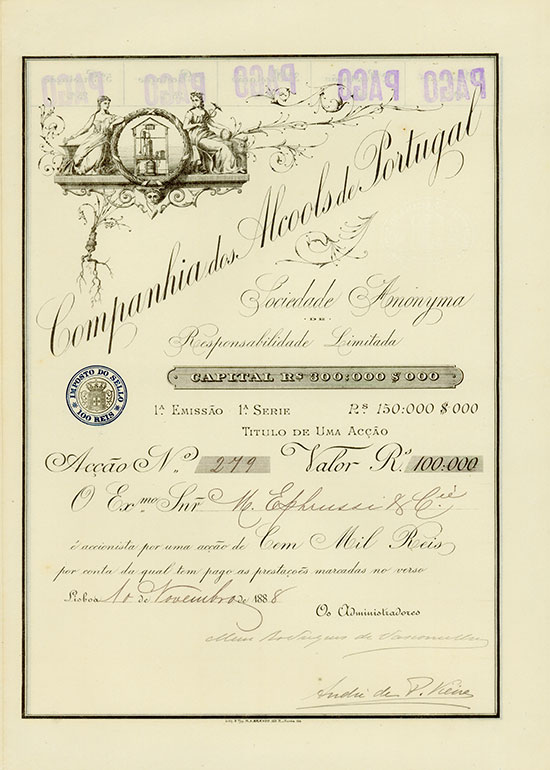 PAGO PAGO PAGO PAGO PAGO
Companhia dos Alcools de Portugal
Sociedade Anónyma
DE
Responsabilidade Limitada
CAPITAL Rs 300:000 $000
IMPOSTO DO SELLO
100 REIS
1ª Emissão 1ª Serie Rs 150:000 $000
Titulo de Uma Acção
Acção N.º 279 Valor R.s 100:000
O Ex.mo Snr M. Ephrussi & Cie
é accionista por uma acção de Cem Mil Reis
por conta da qual tem pago as prestações marcadas no verso
Lisboa 10 de Novembro de 1888
Os Administradores
de Vasconcellos
André de P.